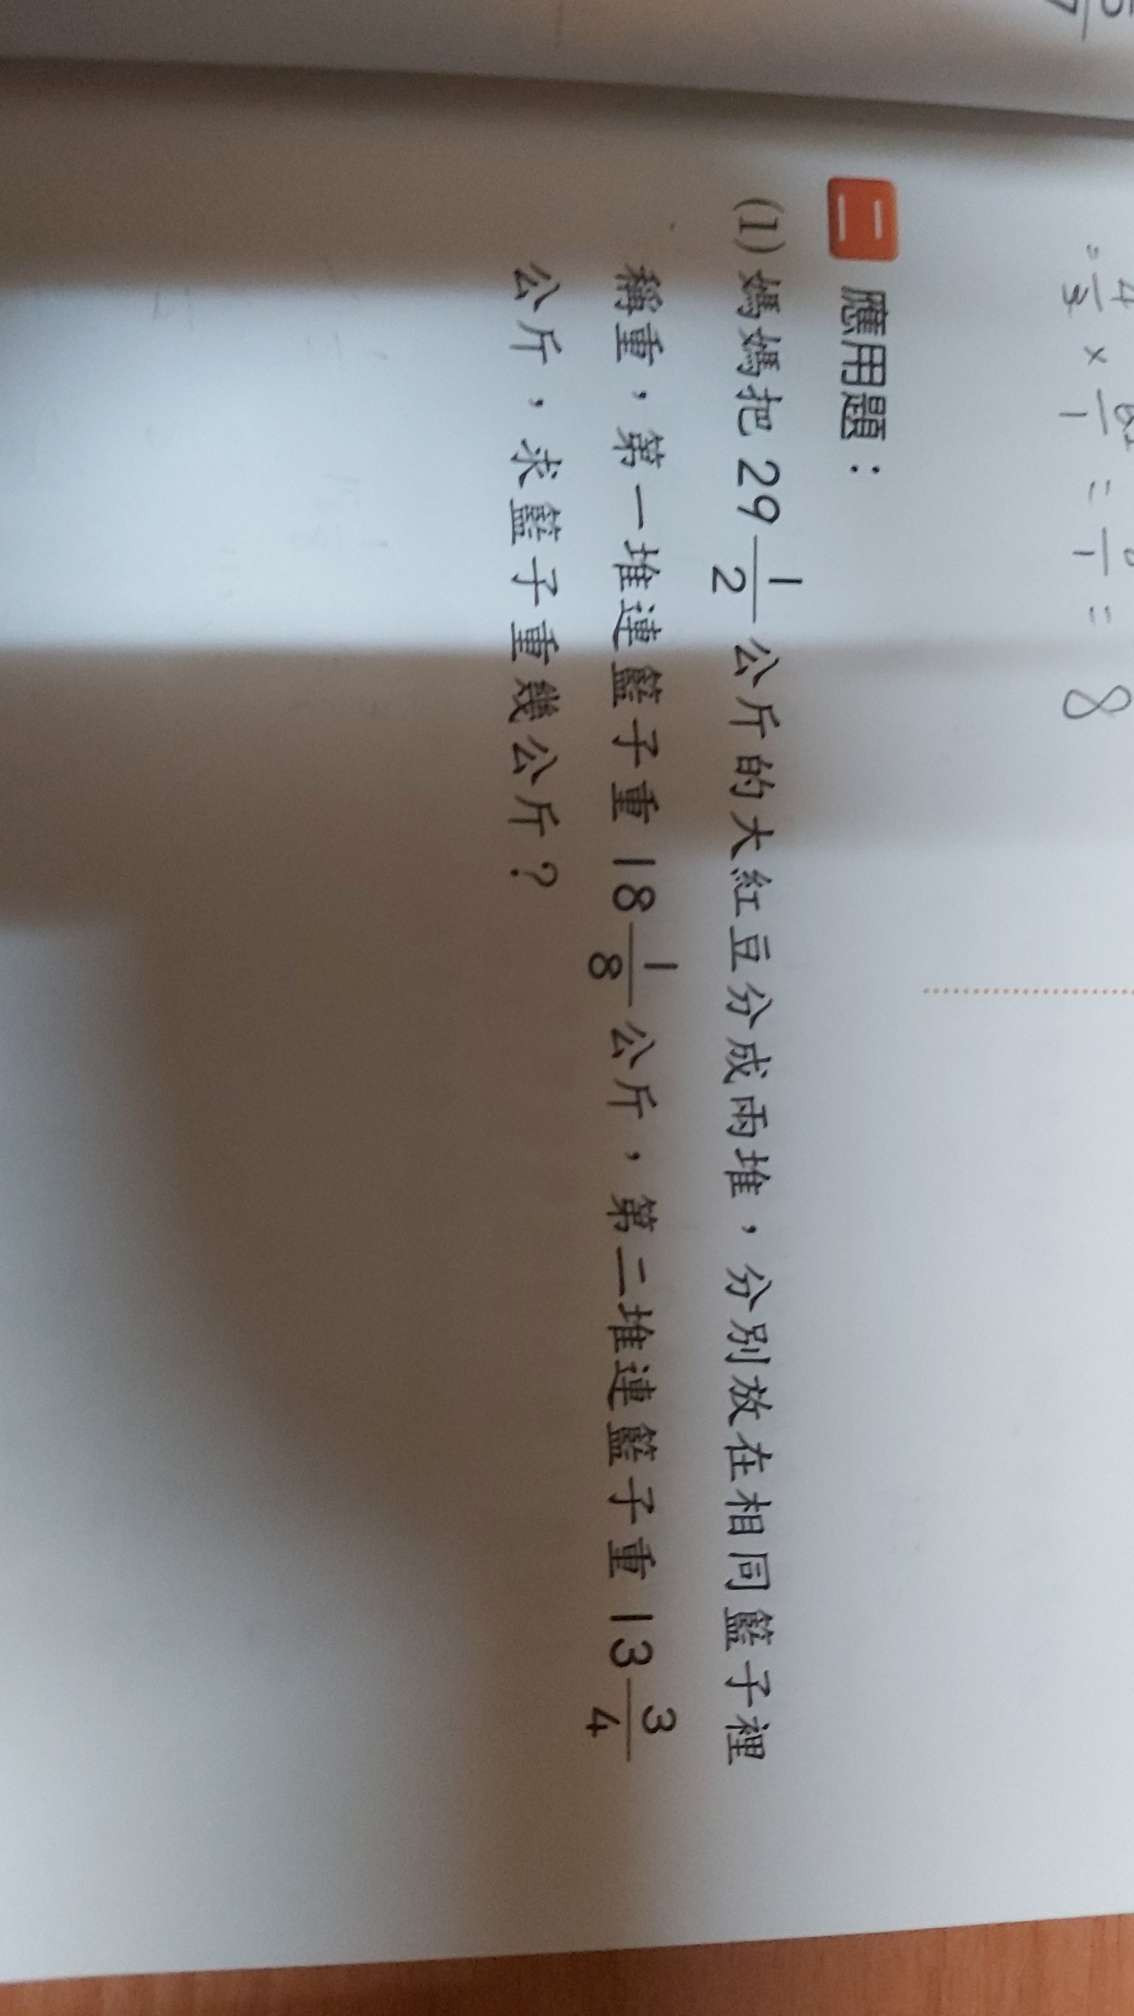 4/3 × /1 = /1 = 8
二 應用題：
(1) 媽媽把 29 1/2 公斤的大紅豆分成兩堆，分別放在相同籃子裡
稱重，第一堆連籃子重 18 1/8 公斤，第二堆連籃子重 13 3/4
公斤，求籃子重幾公斤？